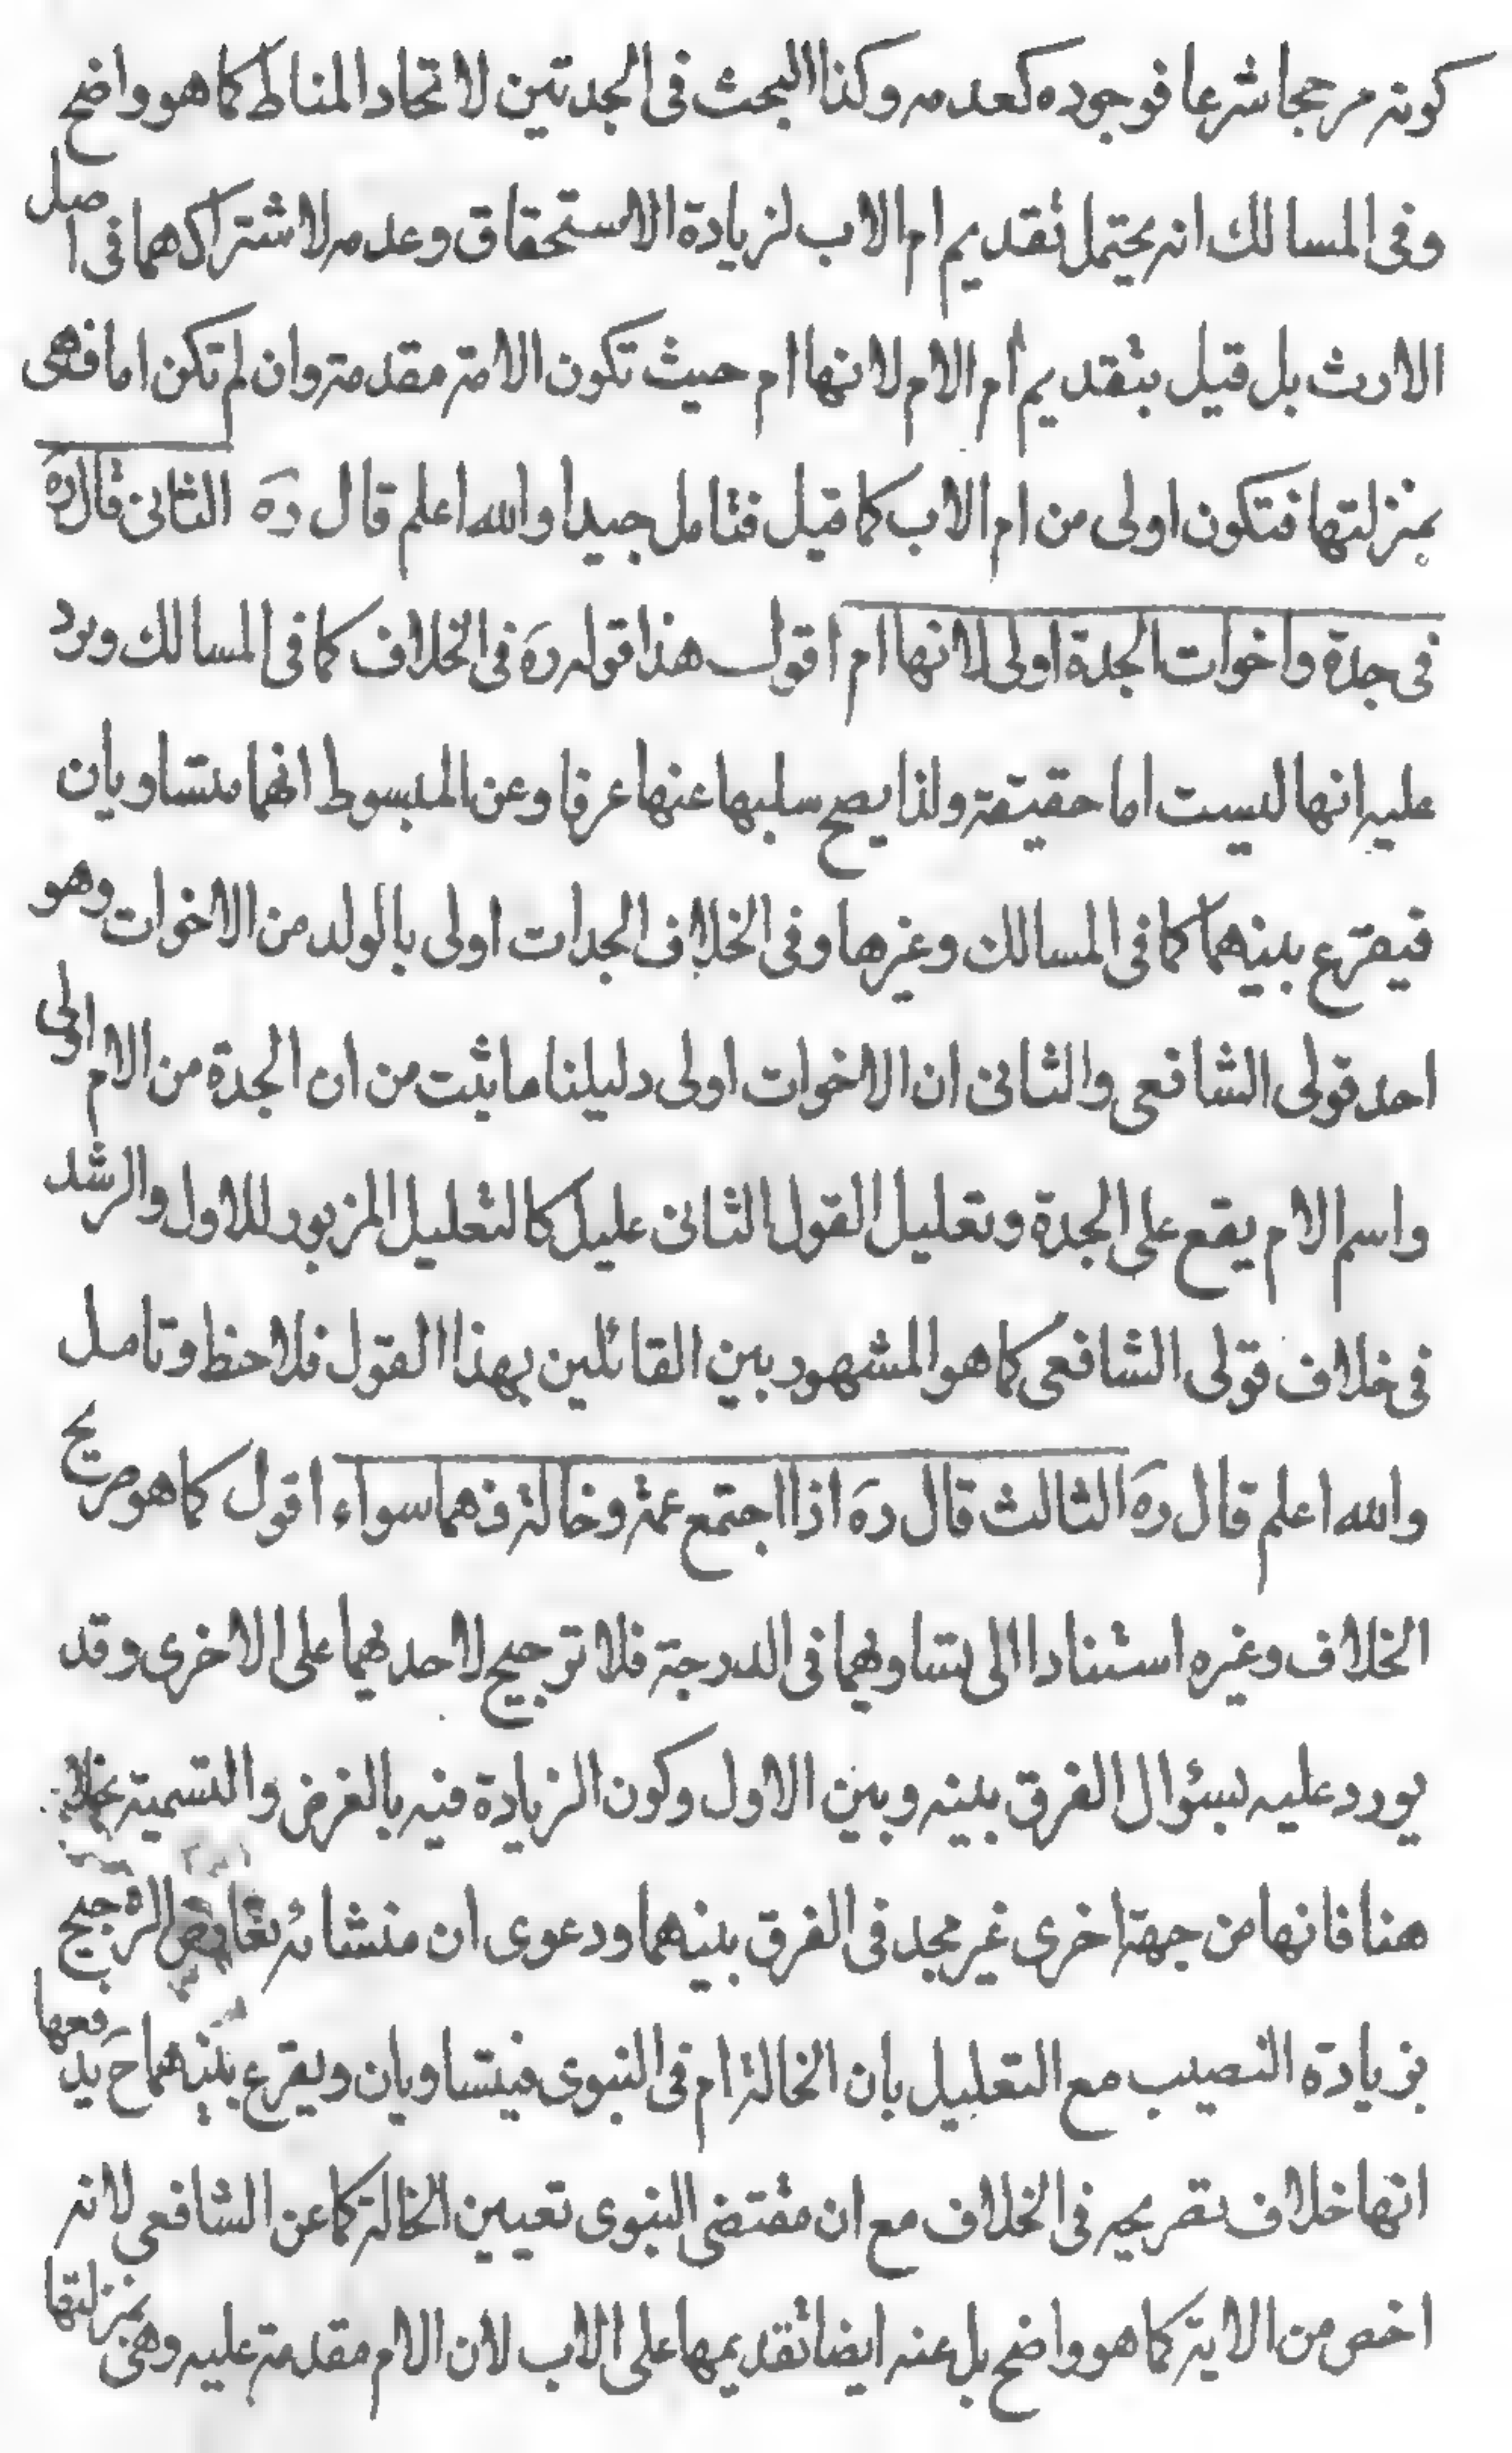 كونه مرجحا شرعا فوجوده كعدمه وكذا البحث فى الجدتين لاتحاد المناط كما هو واضح
وفى المسالك انه يحتمل تقديم ام الاب لزيادة الاستحقاق وعدمه لاشتراكهما فى اصل
الارث بل قيل بتقديم أم الام لانها ام حيث تكون الامة مقدمة وان لم تكن اما فهى
بمنزلتها فتكون اولى من ام الاب كما قيل فتامل جيدا والله اعلم قال رَه الثانى قال رَه
فى جدة واخوات الجدة اولى لانها ام اقول هذا قوله رَه فى الخلاف كما فى المسالك ويرد
عليه انها ليست اما حقيقة ولذا يصح سلبها عنها عرفا وعن المبسوط انهما متساويان
فيقرع بينهما كما فى المسالك وغيرها وفى الخلاف الجدات اولى بالولد من الاخوات وهو
احد قولى الشافعى والثانى ان الاخوات اولى دليلنا ما ثبت من ان الجدة من الام اولى
واسم الام يقع على الجدة وتعليل القول الثانى عليل كالتعليل المزبور للاول والرشد
فى خلاف قولى الشافعى كما هو المشهور بين القائلين بهذا القول فلاحظ وتامل
والله اعلم قال رَه الثالث قال رَه اذا اجتمع عمة وخالة فهما سواء اقول كما هو صريح
الخلاف وغيره استنادا الى تساويهما فى الدرجة فلا ترجيح لاحديهما على الاخرى وقد
يورد عليه بسؤال الفرق بينه وبين الاول وكون الزيادة فيه بالفرض والتسمية بخلافه
هنا فانها من جهة اخرى غير مجد فى الفرق بينهما ودعوى ان منشائه تعارض الترجيح
بزيادة النصيب مع التعليل بان الخالة ام فى النبوى فيتساويان ويقرع بينهما حَ يدفعها
انها خلاف تصريحه فى الخلاف مع ان مقتضى النبوى تعيين الخالة كما عن الشافعى لانه
اخص من الاية كما هو واضح بل عنه ايضا تقديمها على الاب لان الام مقدمة عليه وهى بمنزلتها